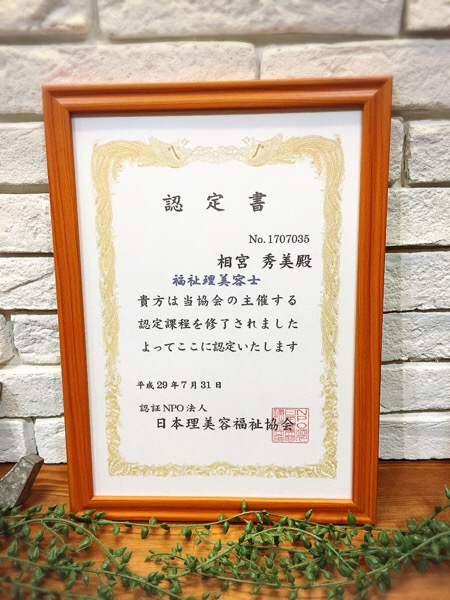 認定書
No.1707035
相宮 秀美殿
福祉理美容士
貴方は当協会の主催する
認定課程を修了されました
よってここに認定いたします
平成29年7月31日
認証NPO法人
日本理美容福祉協会